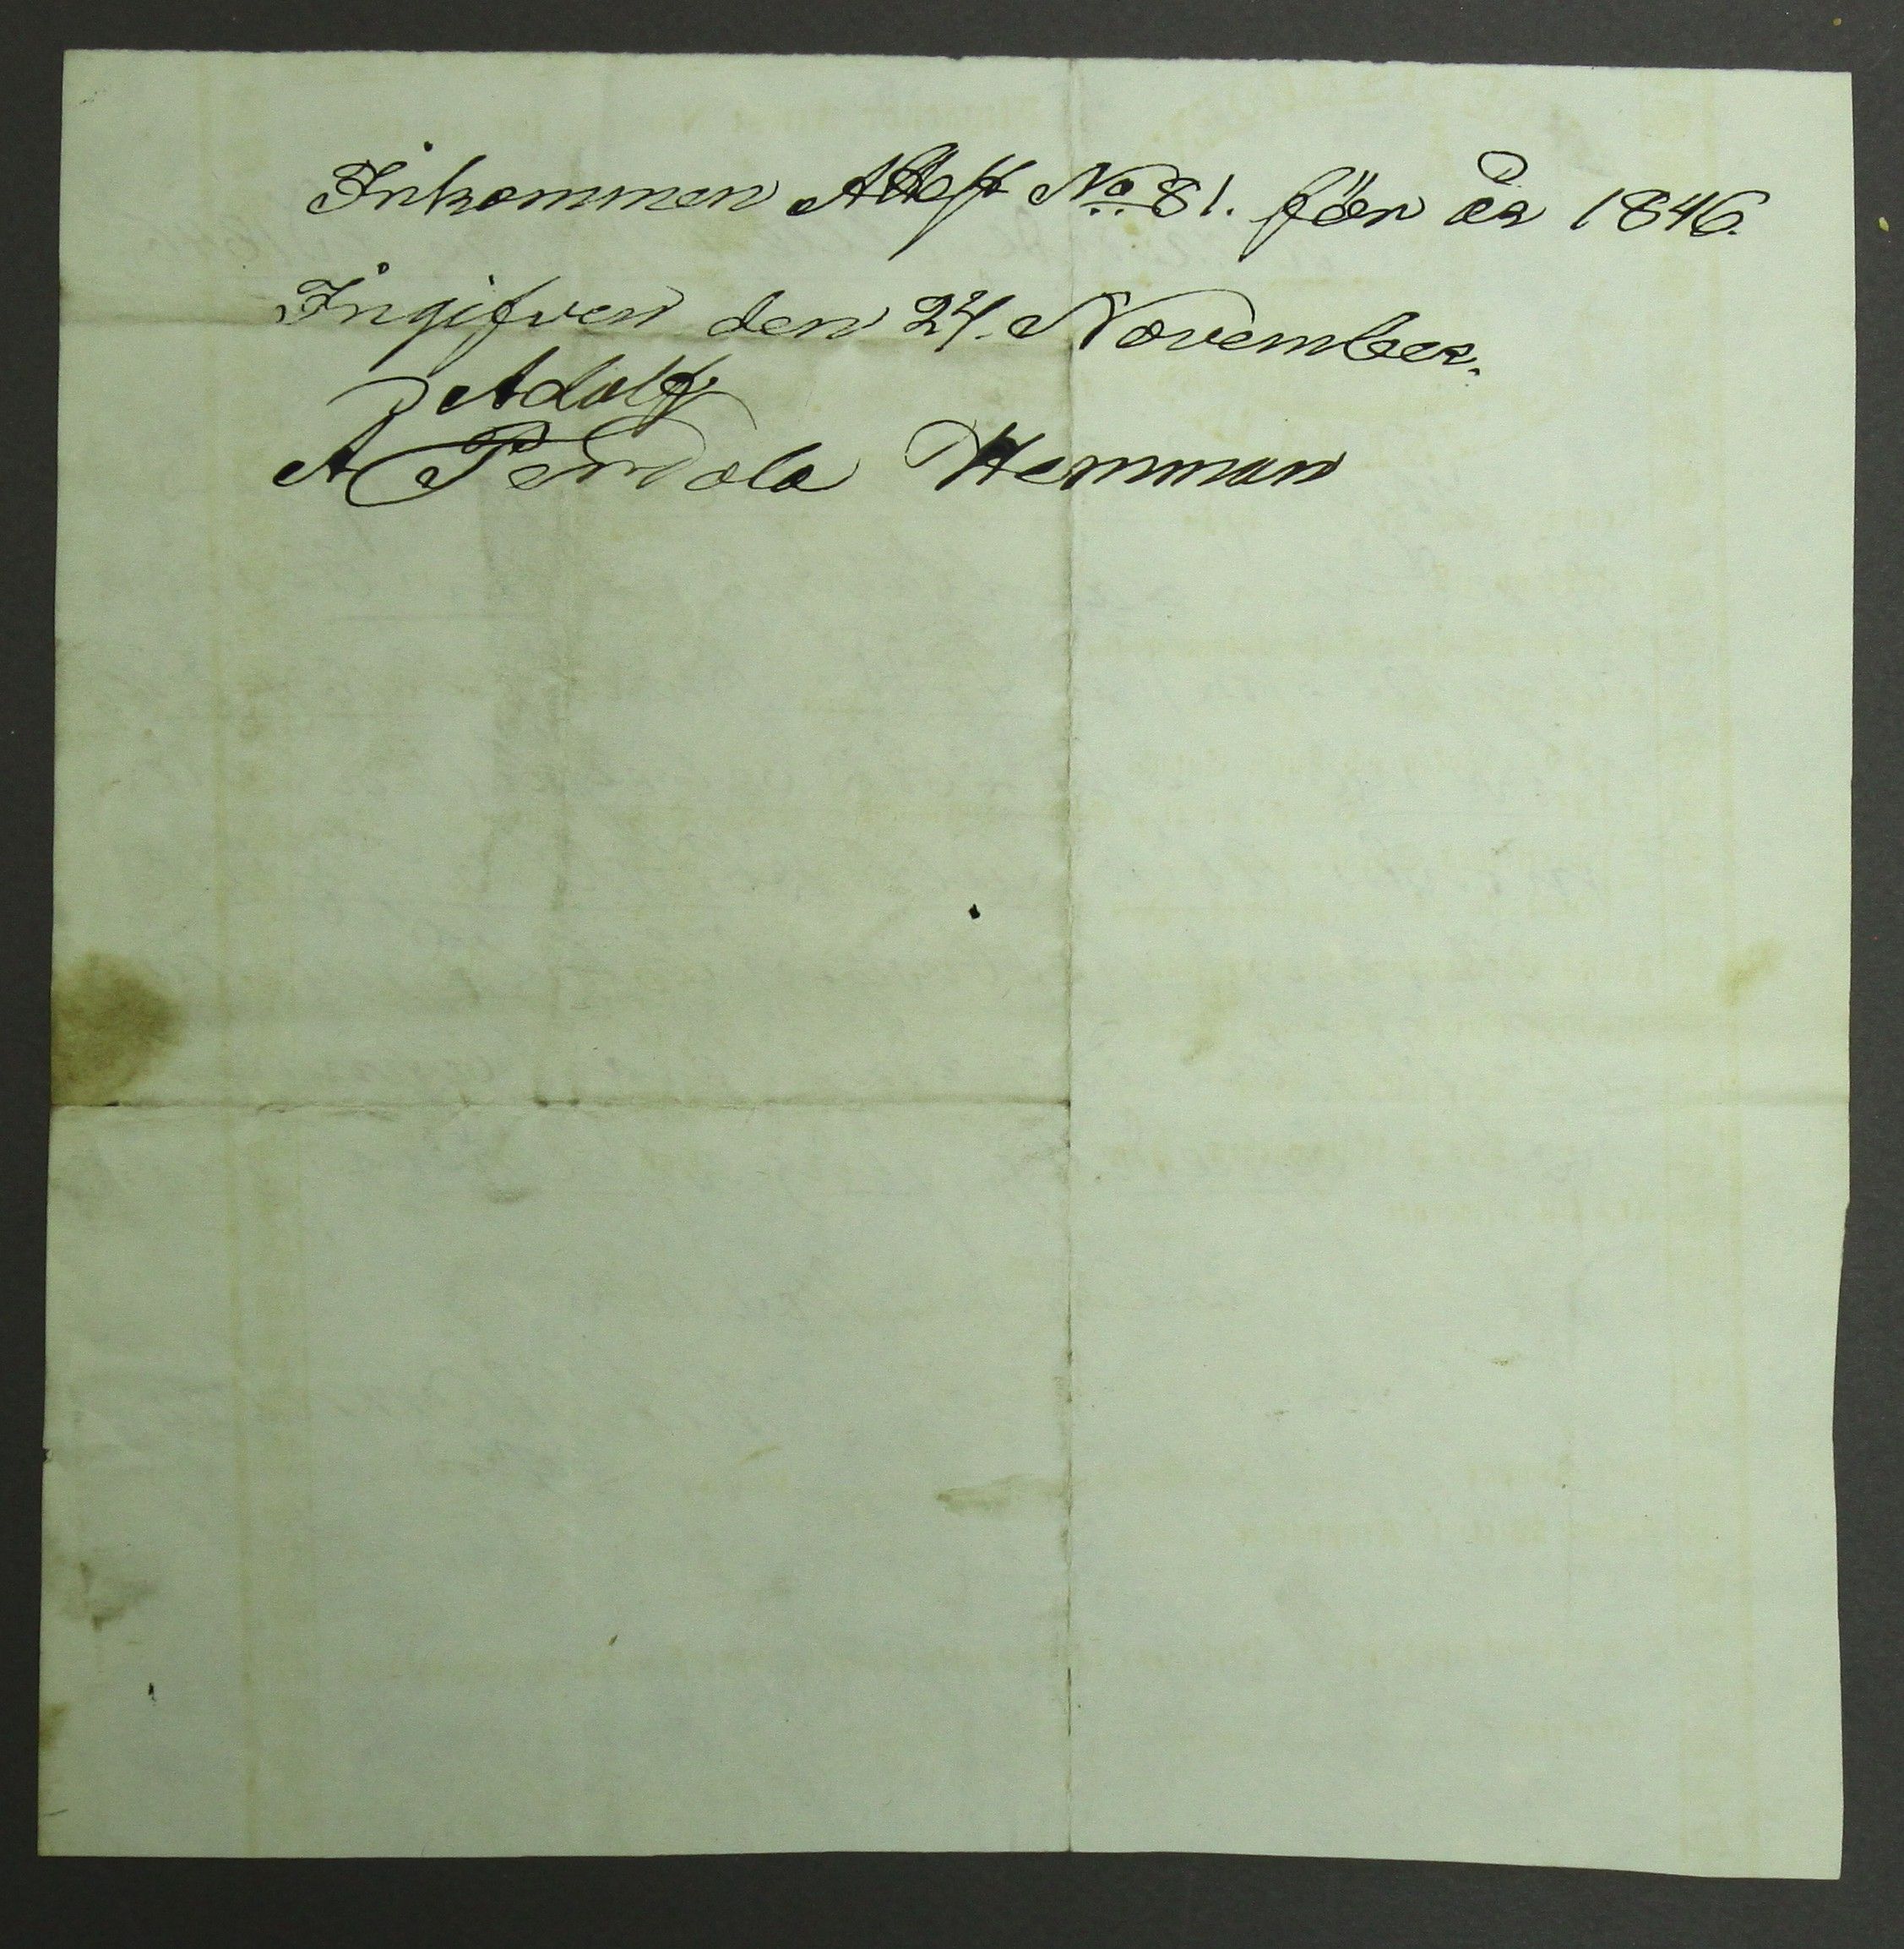 Inkommen Attest No. 81. för år 1846.
Ingifven den 24. November.
Adolf
A Pendola Hemman